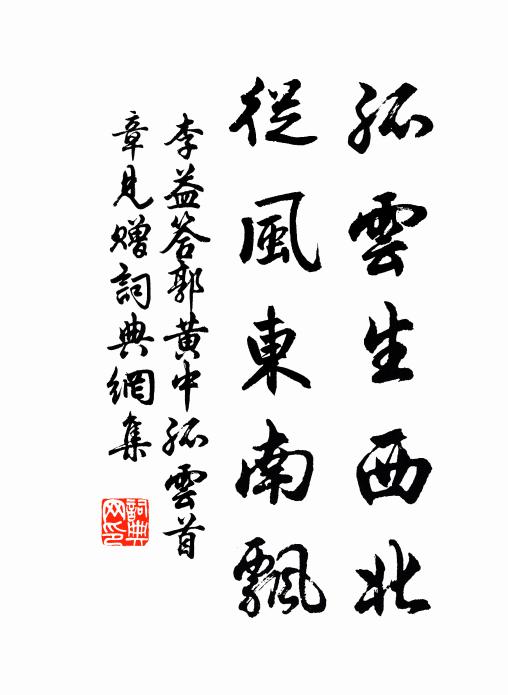 孤雲生西北
從風東南飄
李益答郭黃中孤雲首
章見贈詞典網集
詞典网印